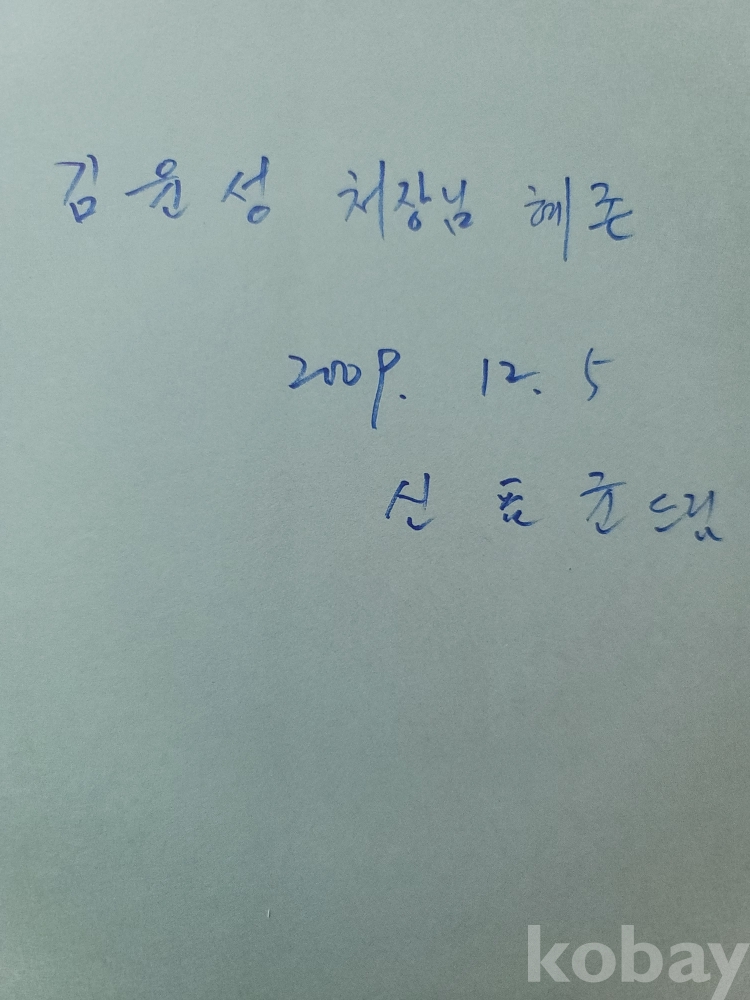 김윤성 처장님 혜존
2009. 12. 5
신표균 드림
kobay